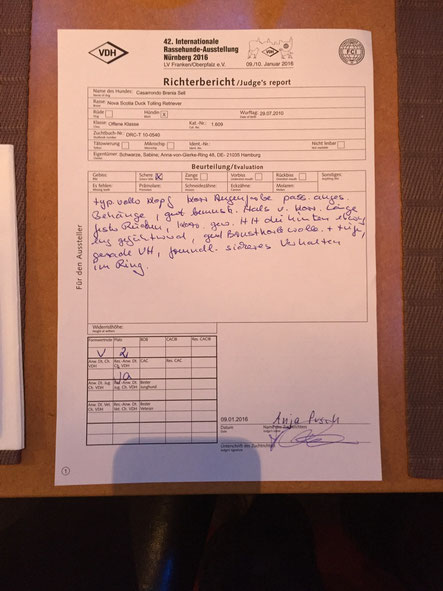 VDH
42. Internationale
Rassehunde-Ausstellung
Nürnberg 2016
LV Franken/Oberpfalz e.V.
09./10. Januar 2016
FCI
Richterbericht/Judge's report
Name des Hundes: Casamondo Brenia Sell
Rasse: Nova Scotia Duck Tolling Retriever
Rüde Hündin x Wurftag: 29.07.2010
Klasse: Offene Klasse Kat.-Nr.: 1.609
Zuchtbuch-Nr.: DRC-T 10-0540
Tätowierung Mikrochip Ident.-Nr.: Nicht lesbar
Eigentümer: Schwarze, Sabine; Anna-von-Gierke-Ring 46, DE- 21035 Hamburg
Beurteilung/Evaluation
Gebiss: Schere x Zange Vorbiss Rückbiss Sonstiges
Es fehlen: Prämolare: Schneidezähne: Eckzähne: Molaren:
typ. volle Kopf korr. Augenfarbe pass. anges.
Behänge, gut bemusk. Hals u. korr. Länge
fester Rücken, korr. gew. HH die hinten
gerade VH, freundl. sicheres Verhalten
im Ring.
Für den Aussteller
Widerristhöhe:
Formwertnote Platz BOB CACIB Res. CACIB
V 2
Anw. Dt. Ch. VDH Res.-Anw. Dt. Ch. VDH CAC Res. CAC
Ja
Anw. Dt. Jug. Ch. VDH Res.-Anw. Dt. Jug. Ch. VDH Bester Junghund
Anw. Dt. Vet. Ch. VDH Res.-Anw. Dt. Vet. Ch. VDH Bester Veteran
09.01.2016
Anja
Datum
1